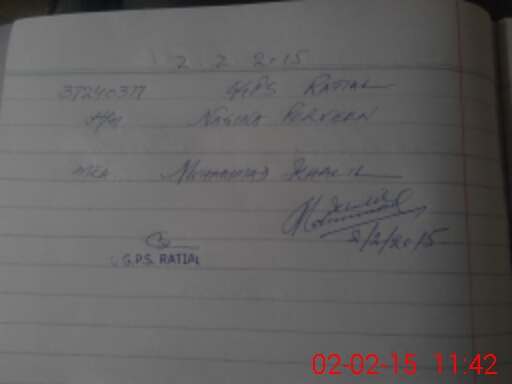 2 2 2015
37240317 GGPS RATIAL
HM NAGINA PERVEEN
MEA. MUHAMMAD
2/2/2015
G.P.S. RATIAL
02-02-15 11:42